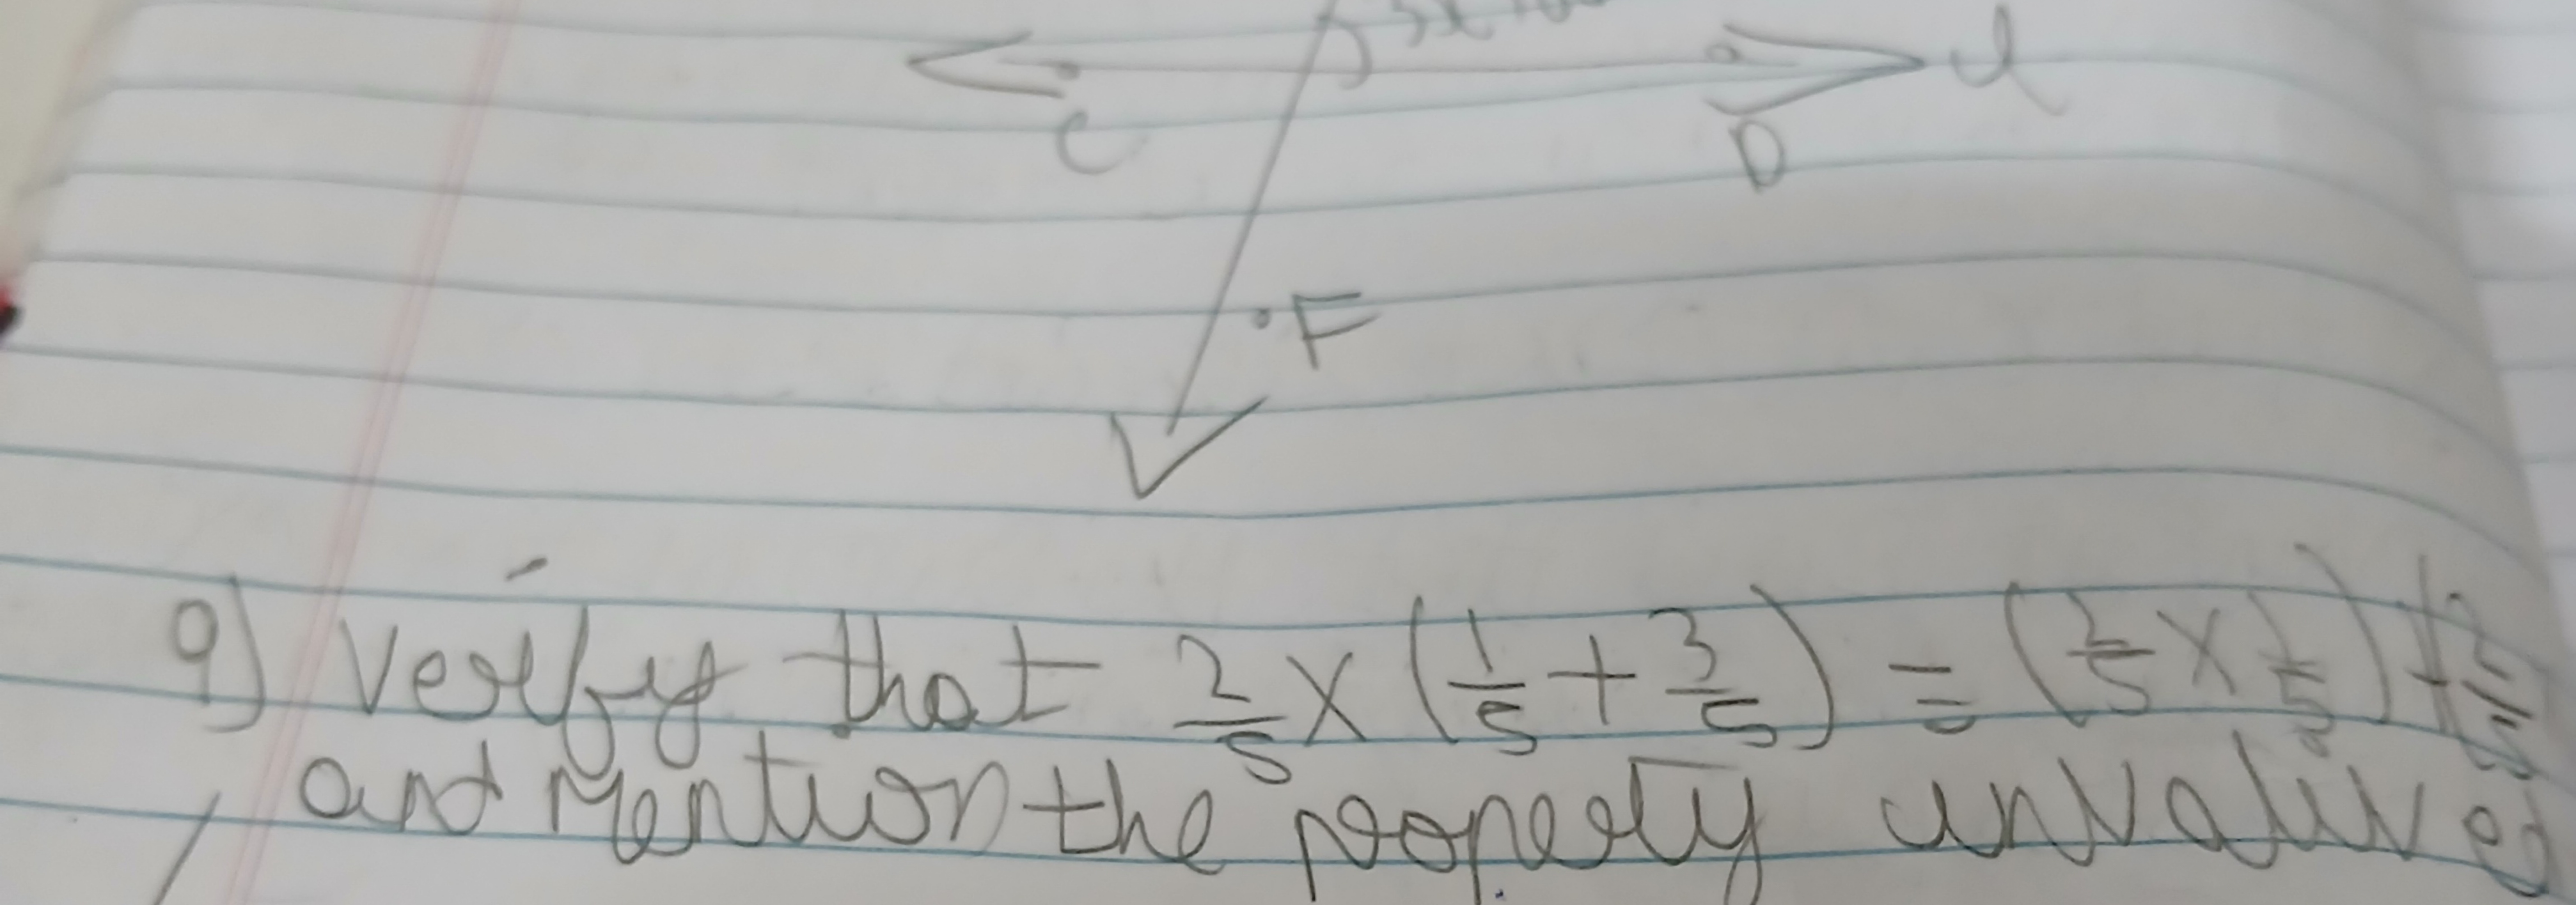 C
D
l
F
9) Verify that 2/5 × (1/5 + 3/5) = (2/5 × 1/5) + (2/5
and Mention the property unvalived